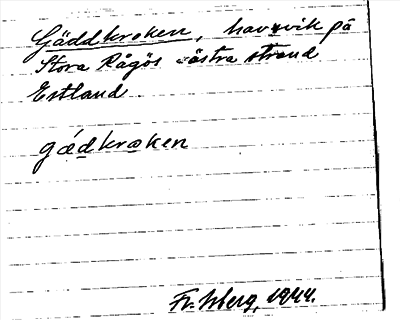 Gäddkroken, havsvik på
Stora Rågös västra strand
Estland.
gǽdkroken
1944.